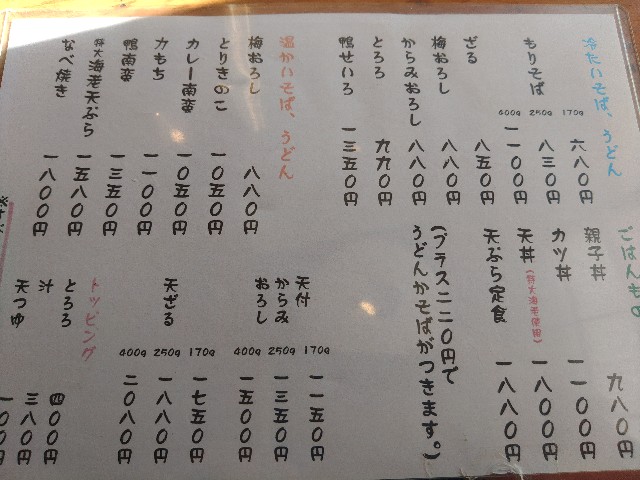 冷たいそば、うどん
もりそば
170g 六八〇円
250g 八三〇円
400g 一一〇〇円
ざる 八五〇円
梅おろし 八八〇円
からみおろし 八八〇円
とろろ 九九〇円
鴨せいろ 一三五〇円
温かいそば、うどん
梅おろし 八八〇円
とりきのこ 一〇五〇円
カレー南蛮 一〇五〇円
力もち 一一〇〇円
鴨南蛮 一三五〇円
特大海老天ぷら 一五八〇円
なべ焼き 一八〇〇円
ごはんもの
親子丼 九八〇円
カツ丼 一一〇〇円
天丼(特大海老使用) 一八〇〇円
天ぷら定食 一八八〇円
(プラス二二〇円で
うどんかそばがつきます。)
天付
からみ
おろし
170g 一一五〇円
250g 一三五〇円
400g 一五〇〇円
天ざる
170g 一七五〇円
250g 一八八〇円
400g 二〇八〇円
トッピング
とろろ 四〇〇円
汁 三八〇円
天つゆ 一〇〇円